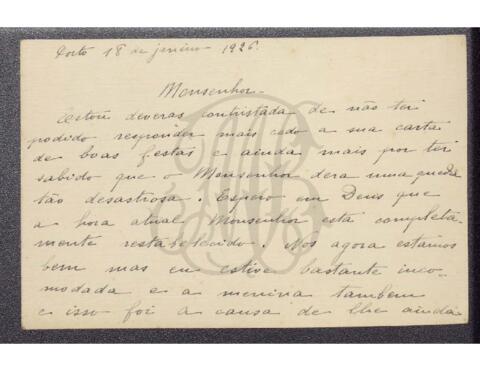 Porto 18 de janeiro 1926.
Monsenhor.
Estou deveras contristada de não ter
podido responder mais cedo a sua carta
de boas festas e ainda mais por ter
sabido que o Monsenhor dera uma queda
tão desastrosa. Espero em Deus que
a hora atual Monsenhor está completa-
mente restabelecido. Nos agora estamos
bem mas eu estive bastante inco-
modada e a menina tambem
e isso foi a causa de lhe ainda